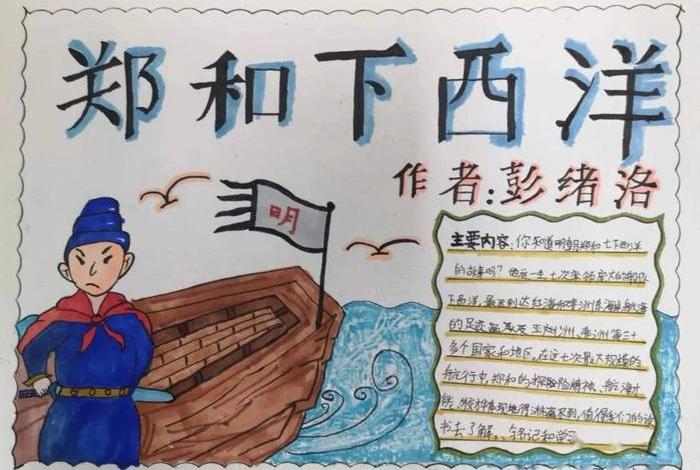 郑和下西洋
作者:彭绪洛
明
主要内容:你知道明朝郑和七下西洋
的故事吗?他这一生七次率领庞大的船队
下西洋,最远到达红海和非洲东海岸,航海
的足迹遍及亚洲、非洲等三十
多个国家和地区。在这七次最大规模的
航行中,郑和的探险精神、航海
技体现地得淋漓尽到,值得我们的读
书去了解、铭记和学习